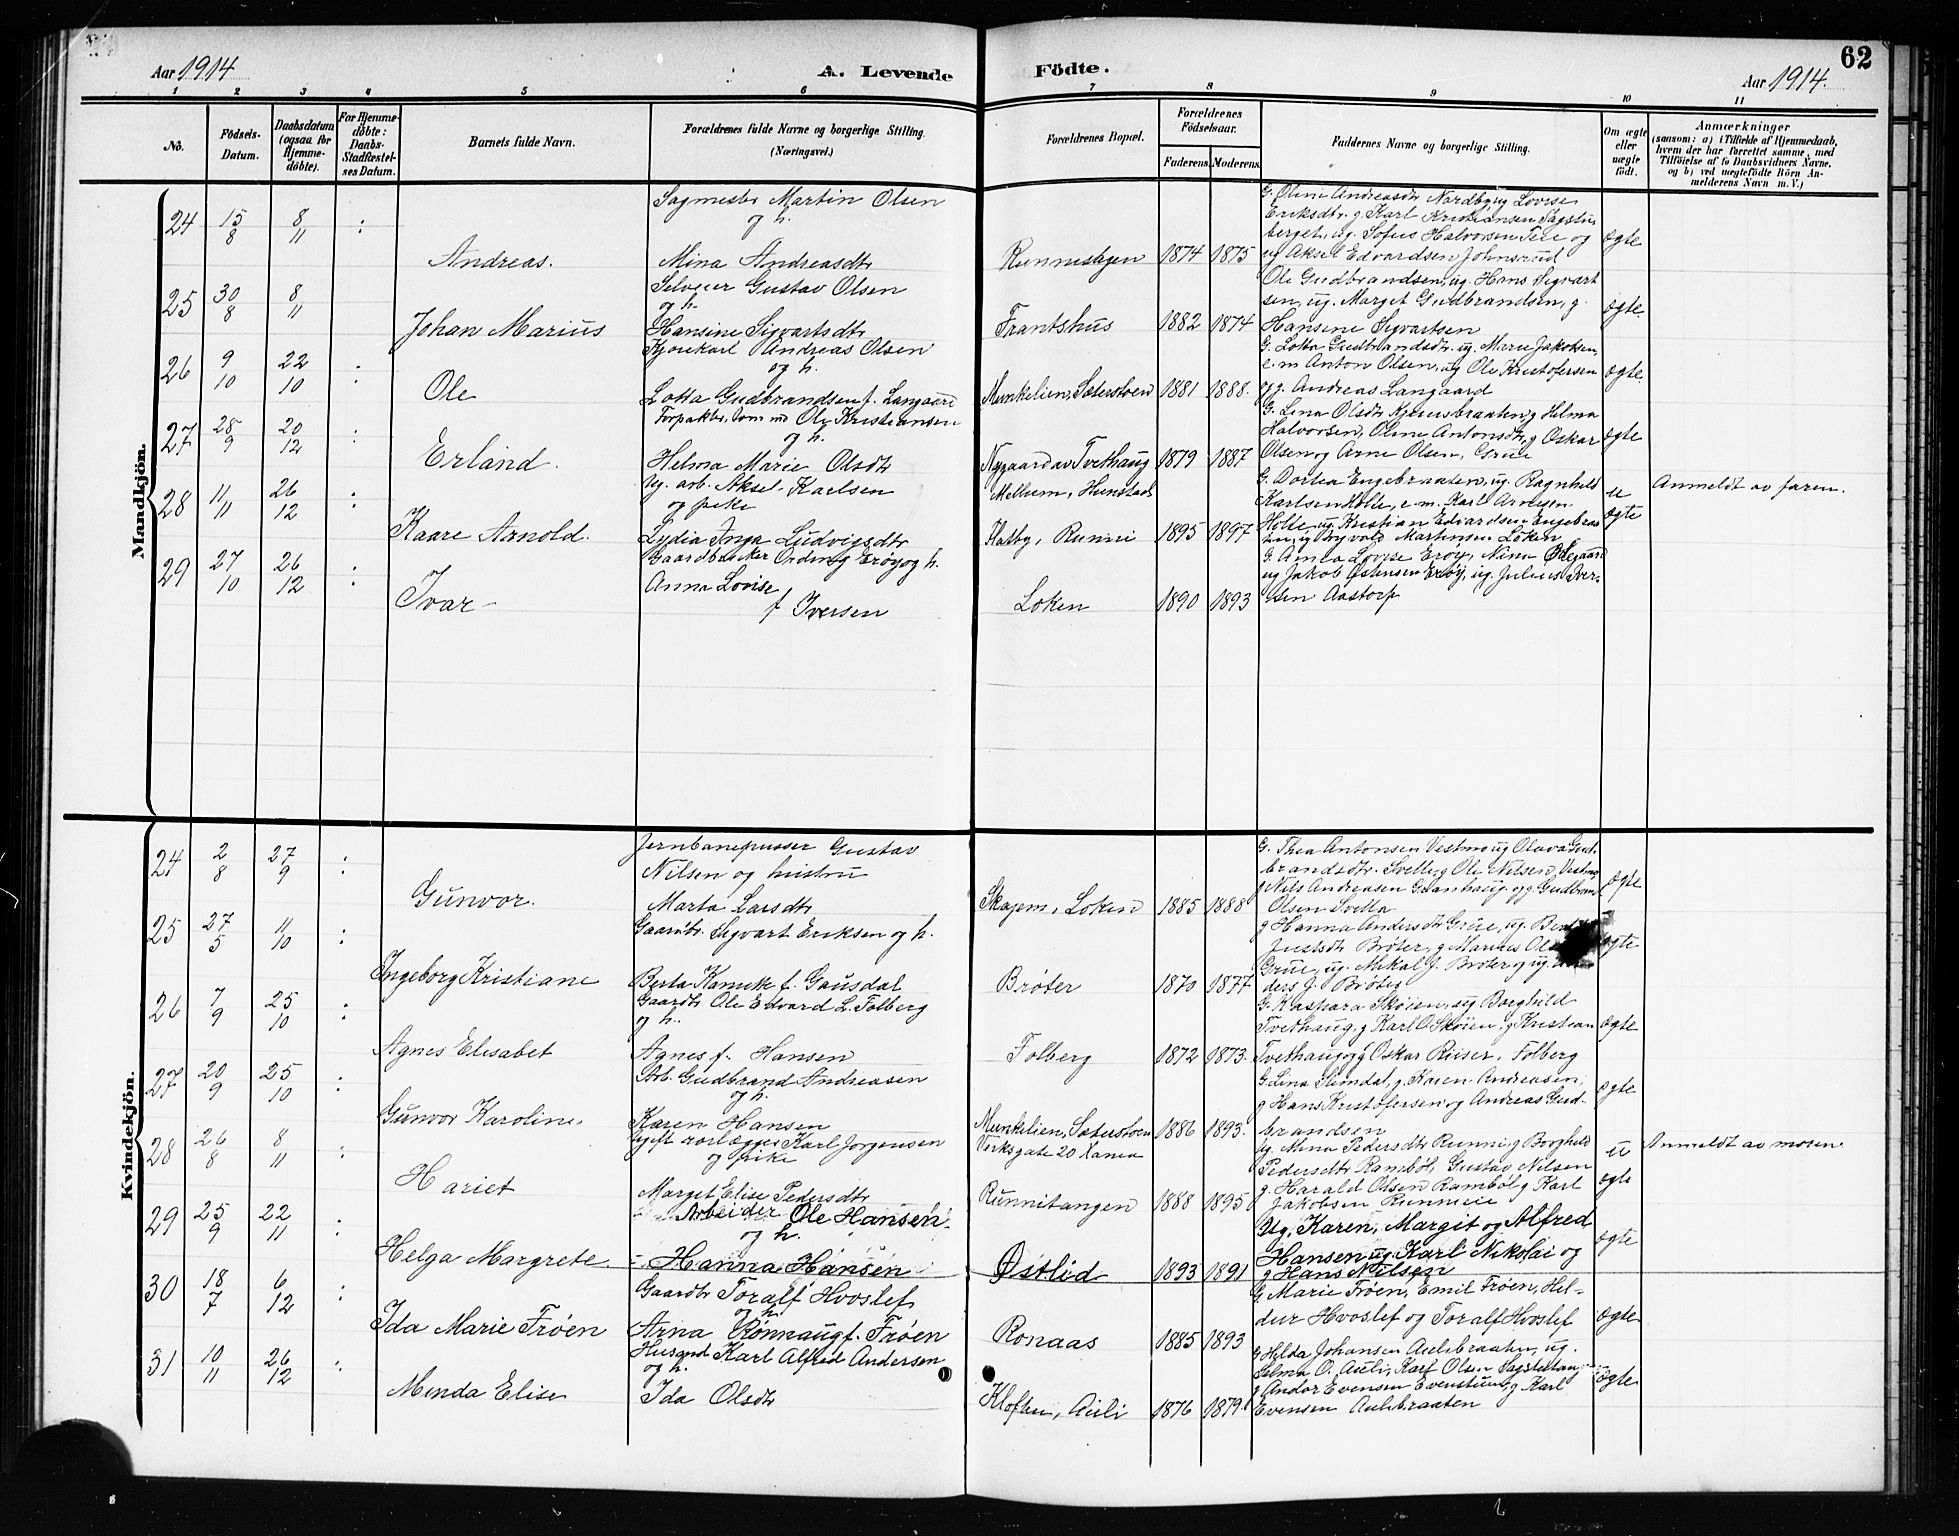 Aar 1914
A. Levende Födte.
Aar 1914.
62
1 2 3 4 5 6 7 8 9 10 11
No.
Fødsels-Datum.
Daabsdatum (ogsaa for Hjemme-døbte).
For Hjemme-døbte: Daabs-Stadfæstel-ses Datum.
Barnets fulde Navn.
Forældrenes fulde Navne og borgerlige Stilling.
(Næringsvei.)
Forældrenes Bopæl.
Forældrenes Fødselsaar.
Faderens. Moderens.
Faddernes Navne og borgerlige Stilling.
Om ægte eller uægte født.
Anmærkninger
(saasom: a) i Tilfælde af Hjemmedaab,
hvem der har forrettet samme, med
Tilföielse af to Daabsvidners Navne,
og b) ved uægtefødte Börn An-
melderens Navn m. V.)
Mandkjön.
24 15/8 8/11 : Andreas.
Sagmester Martin Olsen
og h.
Mina Andreasdtr
1874 1875
G. Oline Andreasdtr Nordby ug Lovise
Eriksdtr. g. Karl Kristiansen Sagstu-
berget, ug. Sofus Halvorsen Teie og
ug Aksel Edvardsen Johnsrud
ægte
25 30/8 8/11 Johan Marius
Gustav Olsen
og h.
Hansine Sigvartsdtr
Frantshus 1882 1874
Ole Gudbrandsen, ug. Hans Sigvart
sen, ug. Marget Gudbrandsen, g.
Hansine Sigvartsen
ægte.
26 9/10 22/10 : Ole
Kjørekarl Andreas Olsen
og h.
Lotta Gudbrandsen f. Langaard
Munkelien, Sæterstøen 1881 1888.
G. Lotta Gudbrandsdtr. ug. Marie Jakobsen,
e. m Anton Olsen, ug Ole Kristofersen
og g. Andreas Langaard
ægte.
27 28/9 20/12 : Erland.
Ole Kristiansen
og h.
Helma Marie Olsdtr
Nygaard av Tvethaug 1879 1887
G. Lina Olsdtr g Helma
Halvorsen, Oline Antonsdtr, g Oskar
Olsen og Arne Olsen, Grue
ægte
28 11/11 26/12 : Kaare Arnold.
Ug. arb. Aksel Karlsen
og pike
Lydia Inga Ludvigsdtr
Mellum, Hunstad
Halby, Runni 1895 1897
G. Dortea Engebraaten, ug. Ragnhild
Karlsen Holte, e. m. Karl Arnesen
Holte, ug. Kristian Edvardsen Engebraa
ten, g Martinsen Løken
u ægte
Anmeldt av faren.
29 27/10 26/12 : Ivar
Gaardbruker Erøy og h.
Anna Lovise
f Iversen
Løken 1890 1893
G. Anna Lovise Erøy, Nina Ødegaard
ug Jakob Østensen Erøy, ug. Julius Iver-
sen Aastorp
Kvindekjön.
24 2/8 27/9 : Gunvor.
Jernbanepusser Gustav
Nilsen og hustru
Marta Larsdtr
Skajem, Løken 1885 1888
G. Thea Antonsen Vestmo ug Olava Gud-
brandsdtr. Svelle, g Ole Nilsen, Vestmo
g Nils Andreasen Granhaug og g Gudbrand
Olsen Svella
ægte
25 27/5 11/10 : Ingeborg Kristiane
Gaardbr. Sigvart Eriksen og h.
Berta f. Gausdal
Brøter 1870 1877
g Hanna Andersdtr Grue, ug.
Brøter, g Marius
Grue, ug. Mikal J. Brøter og ug.
ders J. Brøter
ægte
26 7/9 25/10 : Agnes Elisabet
Gaardbr Ole Edvard L. Folberg
og h.
Agnes f. Hansen
Folberg 1872 1873.
G. Kaspara Skøien, ug Borghild
Tvethaug, g Karl O. Skøien, g Kristian
Tvethaug og g Oskar Riiser. Folberg
ægte
27 20/9 25/10 : Gunvor Karoline.
Arb. Gudbrand Andreasen
og h.
Karen Hansen
Munkelien, Sæterstøen 1886 1893.
G. Lina Slimdal, g. Karen Andreasen,
g Hans Kristofersen og Andreas Gud-
brandsen
ægte
28 26/8 8/11 : Hariet
Ugift rørlægger Karl Jørgensen
og pike
Marget Elise Pedersdtr
Verksgate 20 Xania
Runnitangen 1888 1895
ug. Mina Pedersdtr Runni, g Borghild
Pedersdtr Rambøl, Gustav Nilsen
g. Harald Olsen Rambøl g Karl
Jakobsen
u ægte
Anmeldt av moren
29 25/9 22/11 : Helga Margrete
Arbeider Ole Hansen
og h.
Hanna Hansen
Østlid 1893 1891
Ug. Karen, Margit og Alfred
Hansen ug. Karl Nikolai og
g Hans Nilsen
ægte
30 18/7 6/12 : Ida Marie Frøen
Gaardbr Toralf Hvoslef
og h.
Arna Rønnaug f. Frøen
Ronaas 1885 1893
G. Marie Frøen, Emil Frøen, Hel-
dur Hvoslef og Toralf Hvoslef
ægte
31 10/11 26/12 : Minda Elise
Husmd Karl Alfred Andersen
og h.
Ida Olsdtr
Kloften, Auli 1876 1879
g Helda Johansen Aulibraaten, ug.
Selma O. Auli, Karl Olsen
g Andor Evensen g Karl
Evensen Aulibraaten
ægte